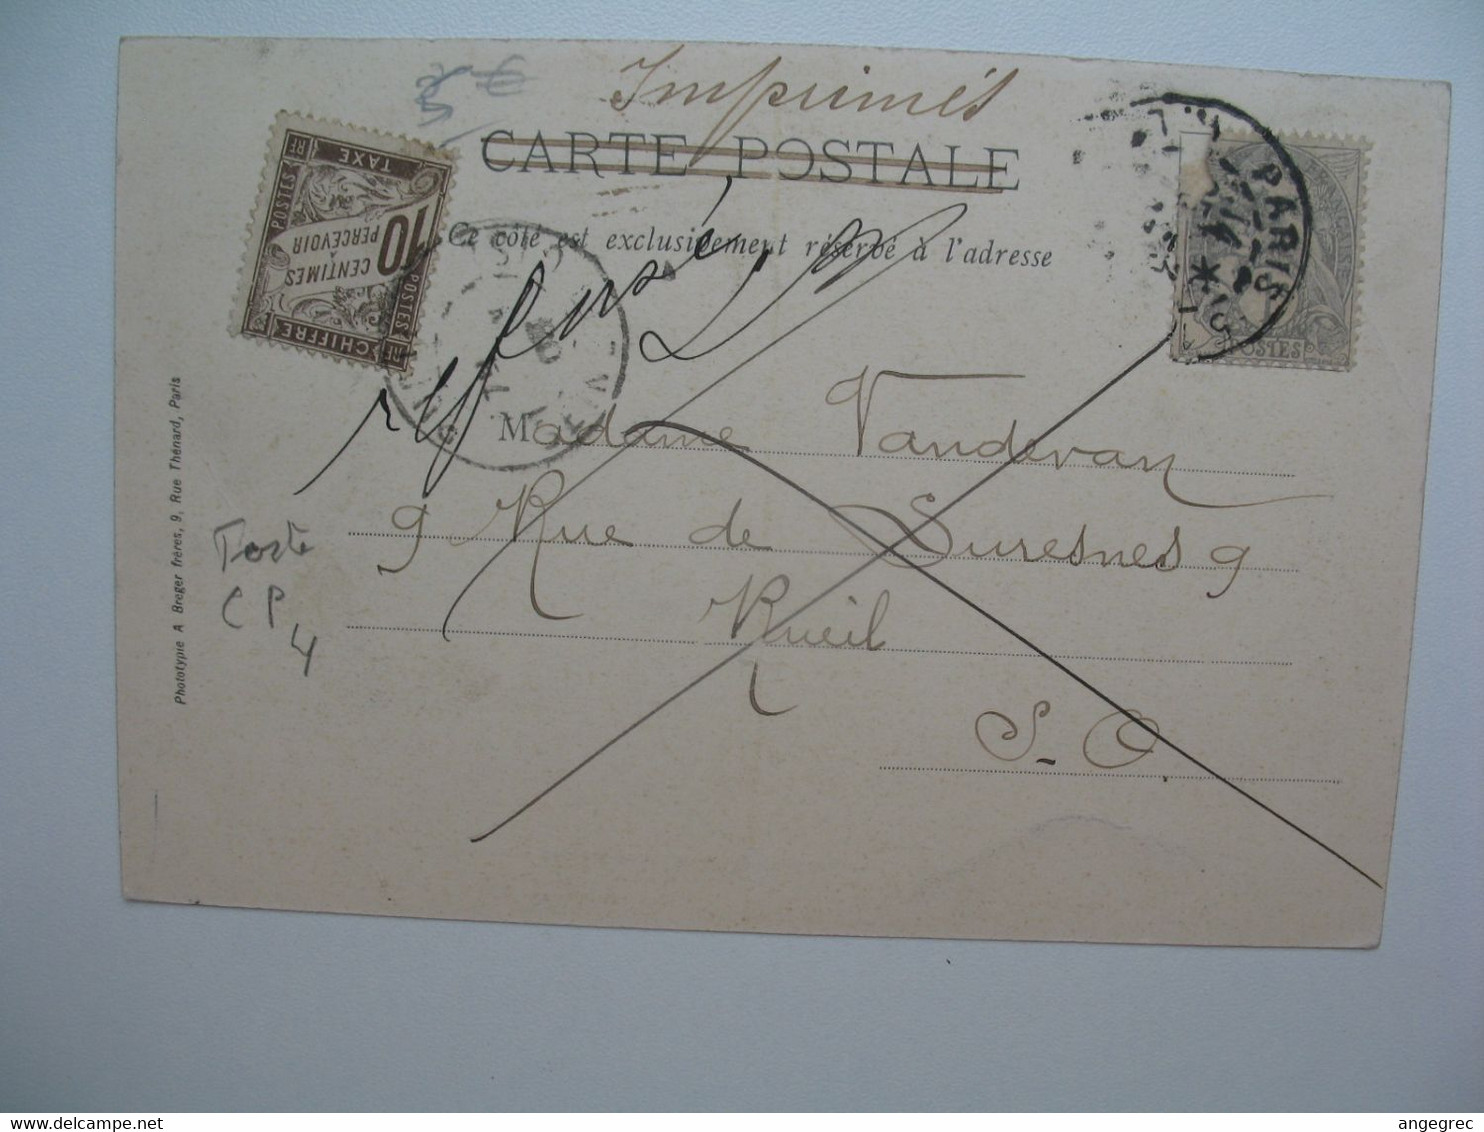 Imprimés
CARTE POSTALE
Ce côté est exclusivement réservé à l'adresse
refusé
Madame Vandevan
9 Rue de Suresnes 9
Rueil
S-O.
TAXE
POSTES
RF
10
CENTIMES
À
PERCEVOIR
POSTES
CHIFFRE
PARIS
POSTES
5 €
CP
4
Phototypie A Breger frères, 9, Rue Thénard, Paris
www.delcampe.net
angegrec